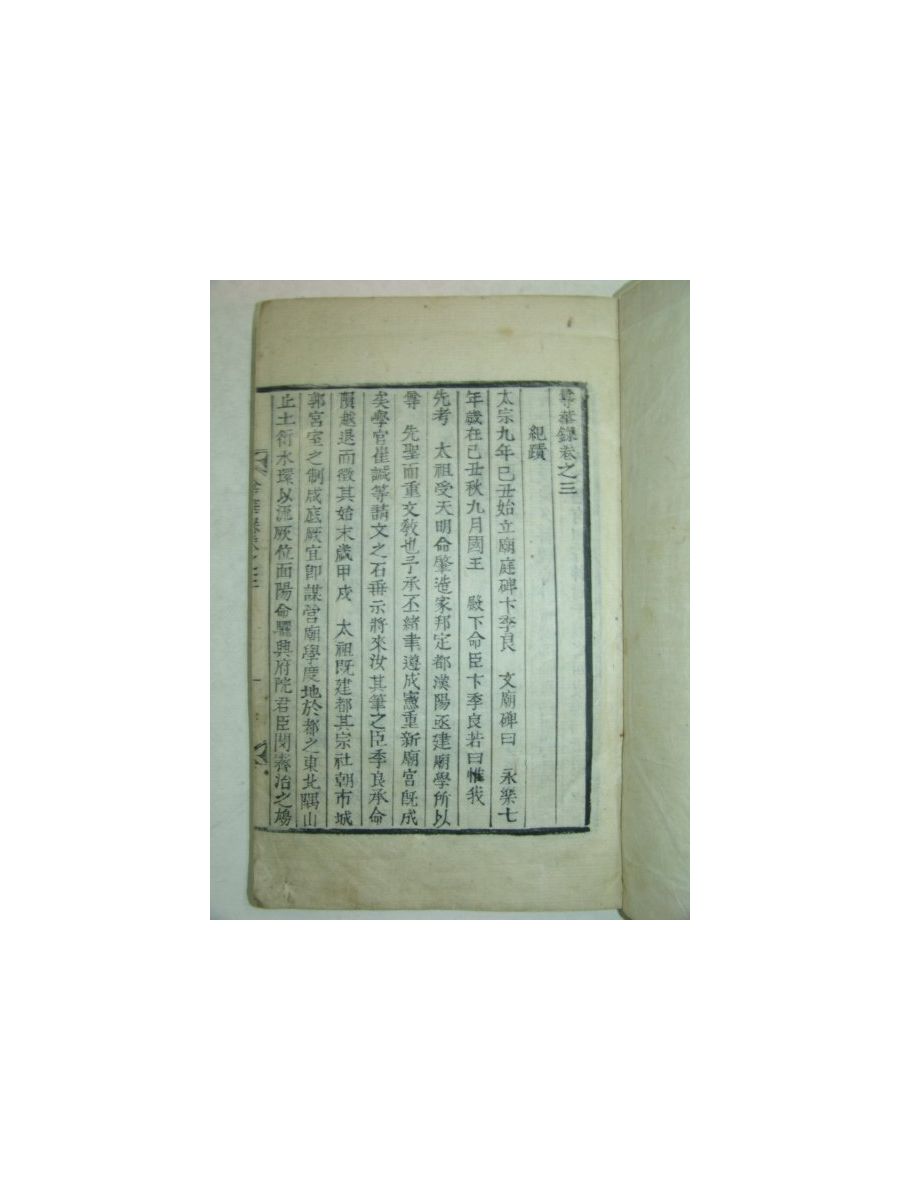 尊華錄卷之三
紀蹟
太宗九年己丑始立廟庭碑卞季良 文廟碑曰 永樂七
年歲在己丑秋九月國王 殿下命臣卞季良若曰惟我
先考 太祖受天明命肇造家邦定都漢陽亟建廟學所以
尊 先聖而重文敎也予承丕緖聿遵成憲重新廟宮旣成
矣學官崔諴等請文之石垂示將來汝其筆之臣季良承命
隕越退而徵其始末歲甲戌 太祖旣建都其宗社朝市城
郭宮室之制咸底厥宜卽謀營廟學度地於都之東北隅山
止土衍水環以洭厥位面陽命驪興府院君臣閔霽治之鳩
尊華錄卷之三 一